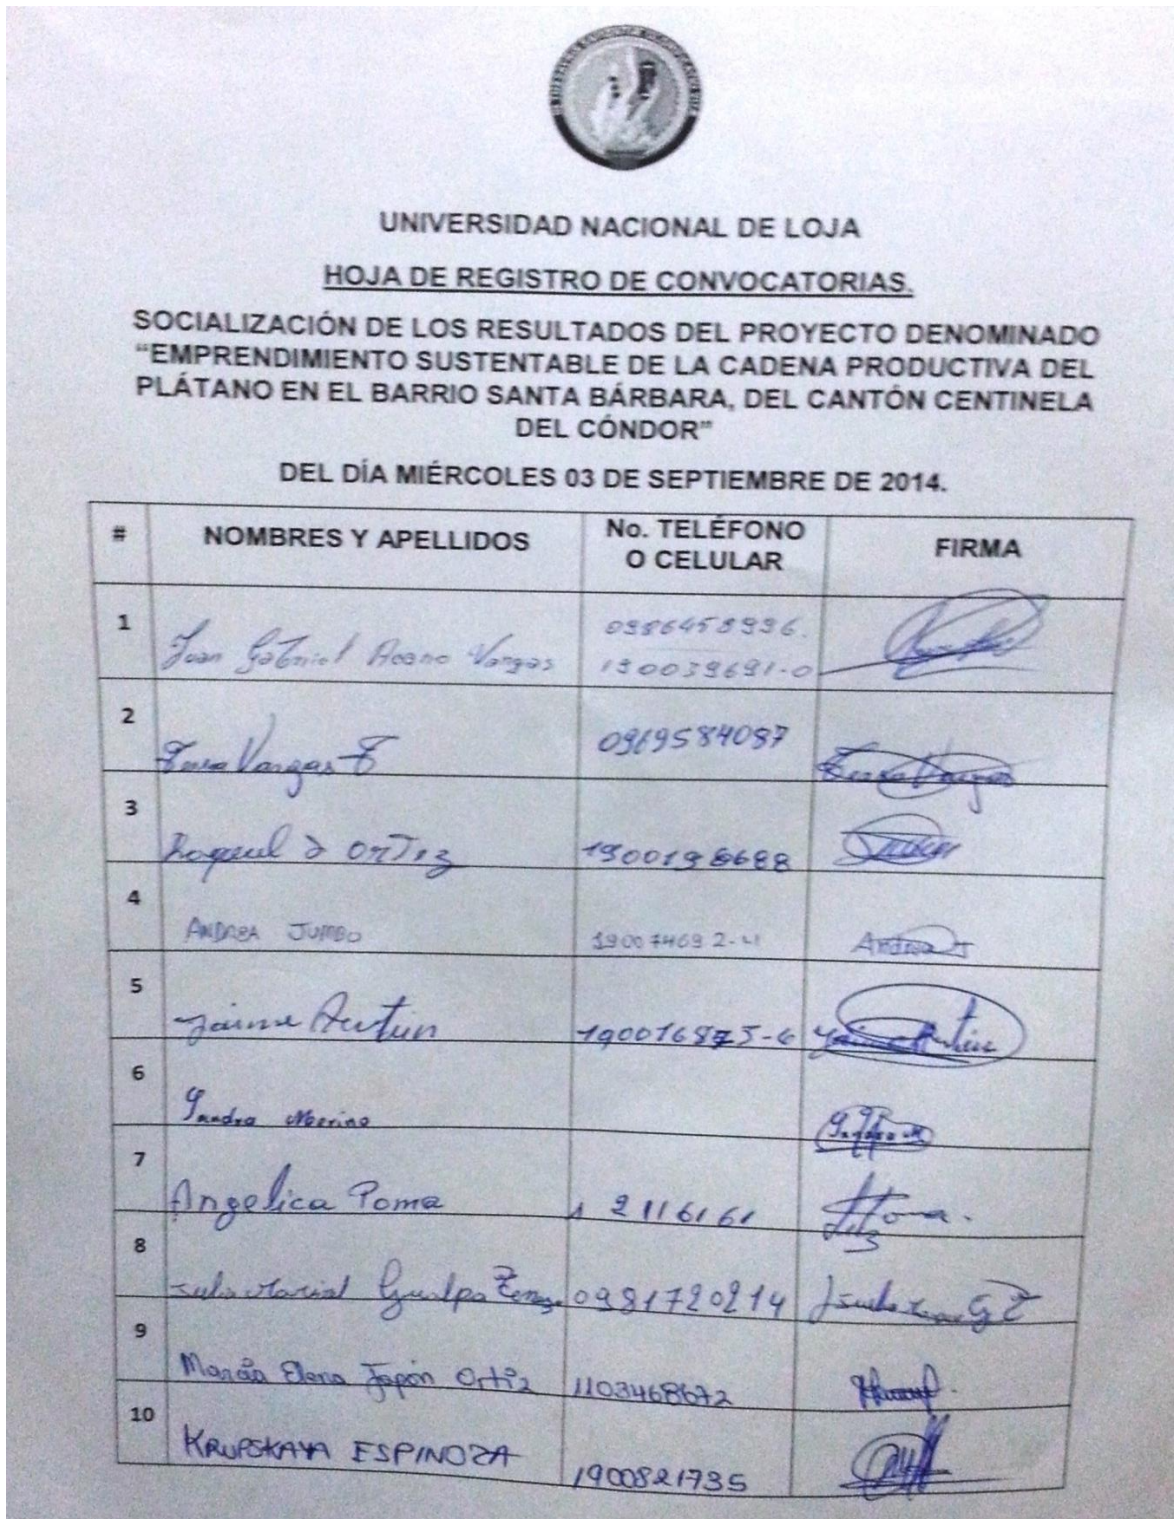 UNIVERSIDAD NACIONAL DE LOJA
HOJA DE REGISTRO DE CONVOCATORIAS.
SOCIALIZACIÓN DE LOS RESULTADOS DEL PROYECTO DENOMINADO
“EMPRENDIMIENTO SUSTENTABLE DE LA CADENA PRODUCTIVA DEL
PLÁTANO EN EL BARRIO SANTA BÁRBARA, DEL CANTÓN CENTINELA
DEL CÓNDOR”
DEL DÍA MIÉRCOLES 03 DE SEPTIEMBRE DE 2014.
# NOMBRES Y APELLIDOS No. TELÉFONO O CELULAR FIRMA
1 Juan Gabriel Vargas 0986458996.
190039691-0
2 Vargas 0969584087 Vargas
3 Ortiz
4 ANDREA JUMBO Andrea J
5 Jaime
6 Sandra Merino Sandra M
7 Angelica Poma 2116161
8 Gualpa 0981720214
9 María Elena Japón Ortiz 1103468672
10 KRUPSKAYA ESPINOZA 1900821735